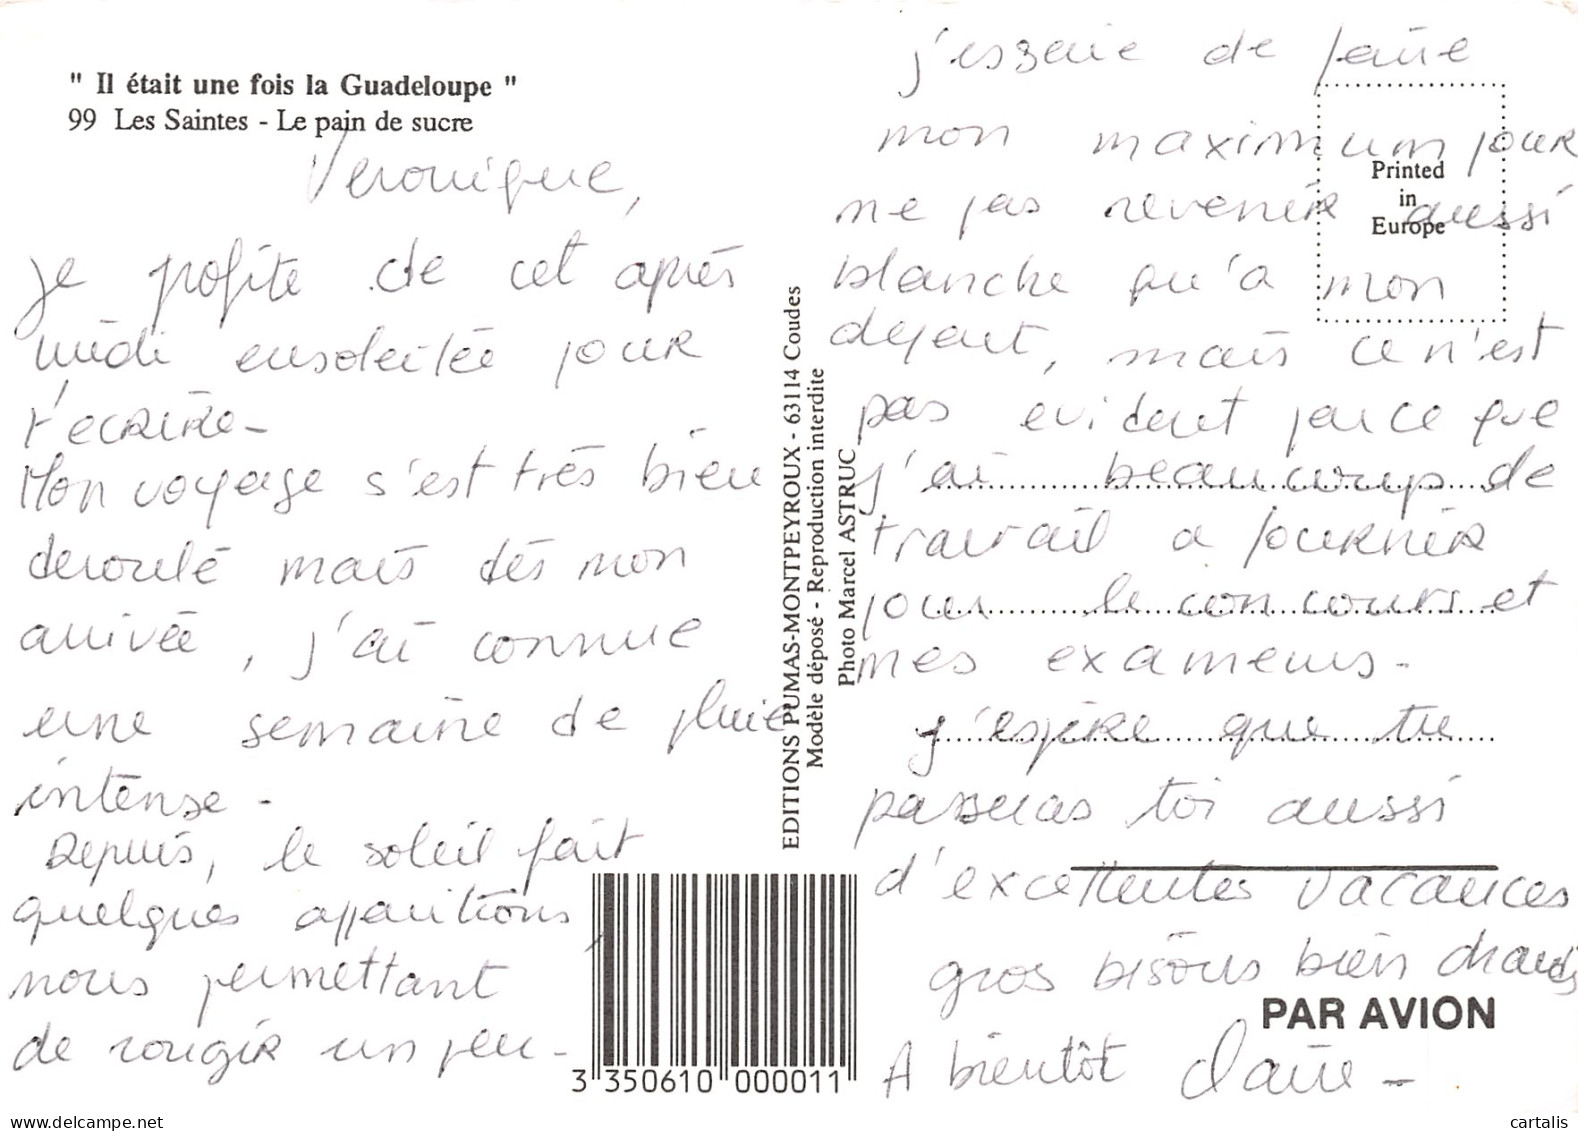 " Il était une fois la Guadeloupe "
99 Les Saintes - Le pain de sucre
Veronique,
Je profite de cet après
midi ensoleilée pour
t'ecrire-
Mon voyage s'est très bien
deroulé mais dès mon
arrivée, j'ai connue
une semaine de pluie
intense -
Depuis, le soleil fait
quelques apparitions,
nous permettant
de rougir un peu-
j'essaie de faire
mon maximum pour
ne pas revenir aussi
blanche qu'a mon
depart, mais ce n'est
pas evident parce que
j'ai beaucoup de
travail a fournir
pour le concours et
mes examens.
j'espère que tu
passeras toi aussi
d'excellentes vacances
gros bisous bien chauds
A bientôt Claire -
Printed
in
Europe
EDITIONS PUMAS-MONTPEYROUX - 63114 Coudes
Modèle déposé - Reproduction interdite
Photo Marcel ASTRUC
PAR AVION
3 350610 000011
delcampe.net
cartalis